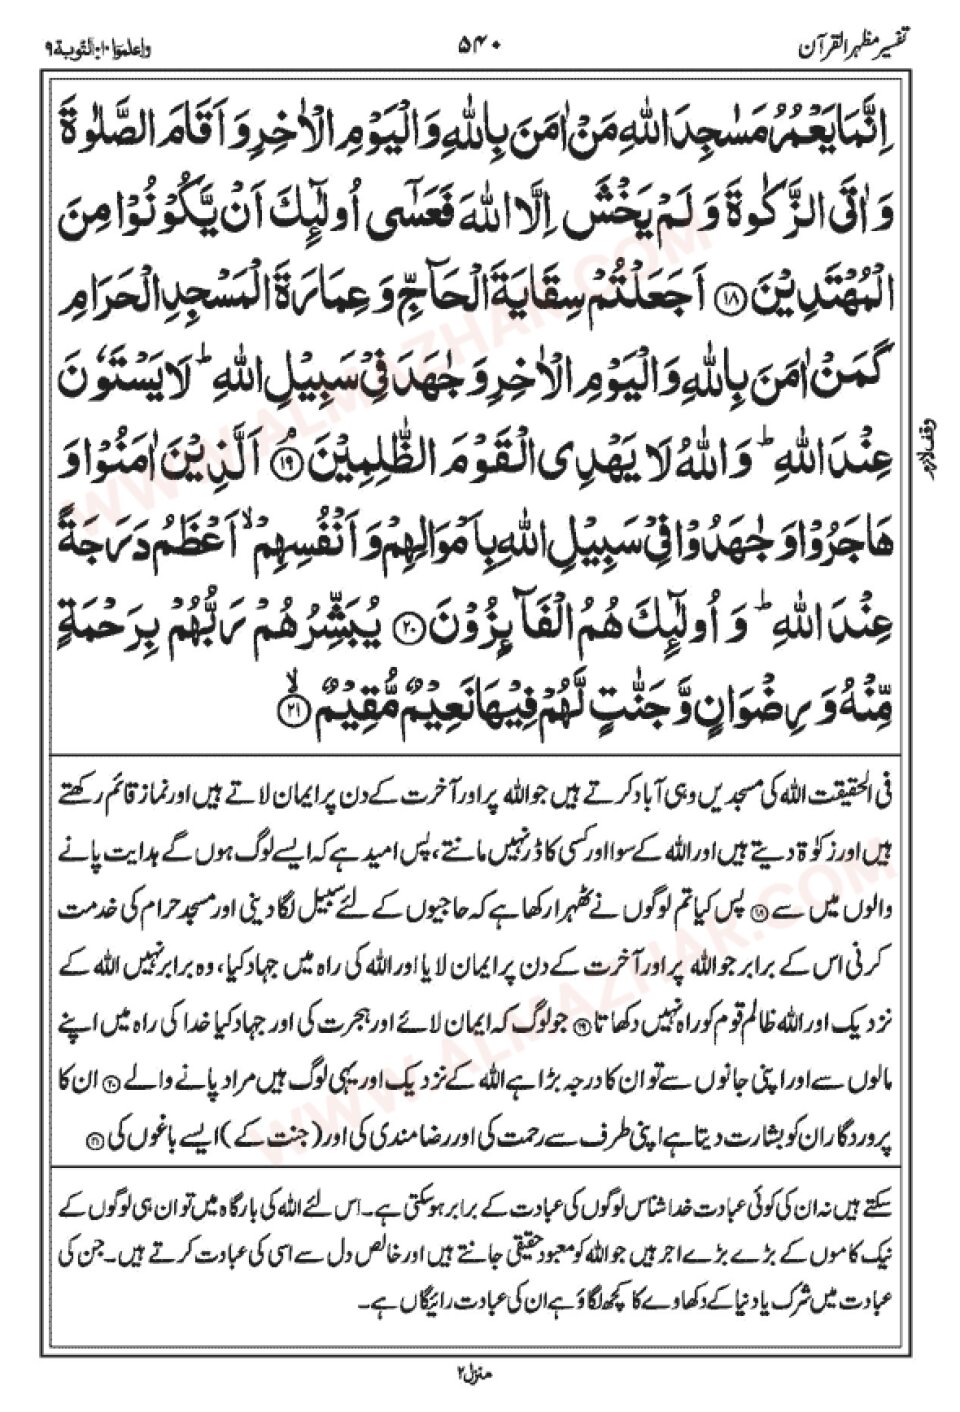 تفسیر مظہر القرآن
۵۴۰
واعلموا ۱۰: التوبۃ ۹
اِنَّمَا یَعْمُرُ مَسٰجِدَ اللهِ مَنْ اٰمَنَ بِاللهِ وَالْیَوْمِ الْاٰخِرِ وَ اَقَامَ الصَّلٰوةَ
وَ اٰتَی الزَّكٰوةَ وَ لَمْ یَخْشَ اِلَّا اللهَ فَعَسٰۤی اُولٰٓئِكَ اَنْ یَّكُوْنُوْا مِنَ
الْمُهْتَدِیْنَ ﴿۱۸﴾ اَجَعَلْتُمْ سِقَایَةَ الْحَآجِّ وَ عِمَارَةَ الْمَسْجِدِ الْحَرَامِ
كَمَنْ اٰمَنَ بِاللهِ وَالْیَوْمِ الْاٰخِرِ وَ جٰهَدَ فِیْ سَبِیْلِ اللهِ ؕ لَا یَسْتَوٗنَ
عِنْدَ اللهِ ؕ وَاللهُ لَا یَهْدِی الْقَوْمَ الظّٰلِمِیْنَ ﴿۱۹﴾ۘ اَلَّذِیْنَ اٰمَنُوْا وَ
وقف لازم
هَاجَرُوْا وَ جٰهَدُوْا فِیْ سَبِیْلِ اللهِ بِاَمْوَالِهِمْ وَ اَنْفُسِهِمْ ۙ اَعْظَمُ دَرَجَةً
عِنْدَ اللهِ ؕ وَ اُولٰٓئِكَ هُمُ الْفَآئِزُوْنَ ﴿۲۰﴾ یُبَشِّرُهُمْ رَبُّهُمْ بِرَحْمَةٍ
مِّنْهُ وَ رِضْوَانٍ وَّ جَنّٰتٍ لَّهُمْ فِیْهَا نَعِیْمٌ مُّقِیْمٌ ﴿۲۱﴾ۙ
فی الحقیقت اللہ کی مسجدیں وہی آباد کرتے ہیں جو اللہ پر اور آخرت کے دن پر ایمان لاتے ہیں اور نماز قائم رکھتے
ہیں اور زکوۃ دیتے ہیں اور اللہ کے سوا اور کسی کا ڈر نہیں مانتے، پس امید ہے کہ ایسے لوگ ہوں گے ہدایت پانے
والوں میں سے ﴿۱۸﴾ پس کیا تم لوگوں نے ٹھہرا رکھا ہے کہ حاجیوں کے لئے سبیل لگا دینی اور مسجد حرام کی خدمت
کرنی اس کے برابر جو اللہ پر اور آخرت کے دن پر ایمان لایا اور اللہ کی راہ میں جہاد کیا، وہ برابر نہیں اللہ کے
نزدیک اور اللہ ظالم قوم کو راہ نہیں دکھاتا ﴿۱۹﴾ جو لوگ کہ ایمان لائے اور ہجرت کی اور جہاد کیا خدا کی راہ میں اپنے
مالوں سے اور اپنی جانوں سے تو ان کا درجہ بڑا ہے اللہ کے نزدیک اور یہی لوگ ہیں مراد پانے والے ﴿۲۰﴾ ان کا
پروردگار ان کو بشارت دیتا ہے اپنی طرف سے رحمت کی اور رضامندی کی اور (جنت کے) ایسے باغوں کی ﴿۲۱﴾
سکتے ہیں نہ ان کی کوئی عبادت خدا شناس لوگوں کی عبادت کے برابر ہو سکتی ہے۔ اس لئے اللہ کی بارگاہ میں تو ان ہی لوگوں کے
نیک کاموں کے بڑے بڑے اجر ہیں جو اللہ کو معبود حقیقی جانتے ہیں اور خالص دل سے اسی کی عبادت کرتے ہیں۔ جن کی
عبادت میں شرک یا دنیا کے دکھاوے کا کچھ لگاؤ ہے ان کی عبادت رائیگاں ہے۔
منزل ۲
WWW.ALMAZHAR.COM
WWW.ALMAZHAR.COM